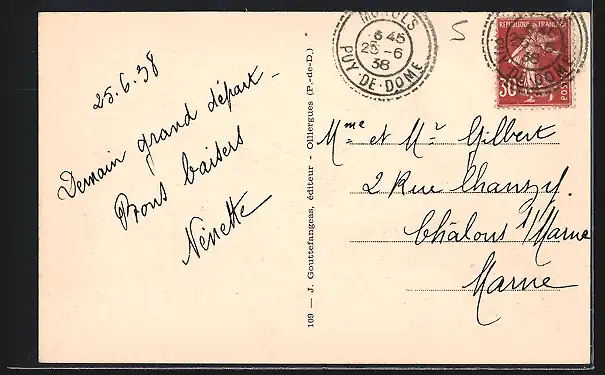 25.6.38
Demain grand départ -
Bons baisers
Nénette
109 — J. Gouttefangeas, éditeur - Olliergues (P.-de-D.)
6 45
25 - 6
38
PUY-DE-DOME
5
REPUBLIQUE FRANÇAISE
30
POSTES
38
PUY-DE-DOME
Mme et Mr Gilbert
2 Rue Chanzy.
Châlons s/Marne
Marne